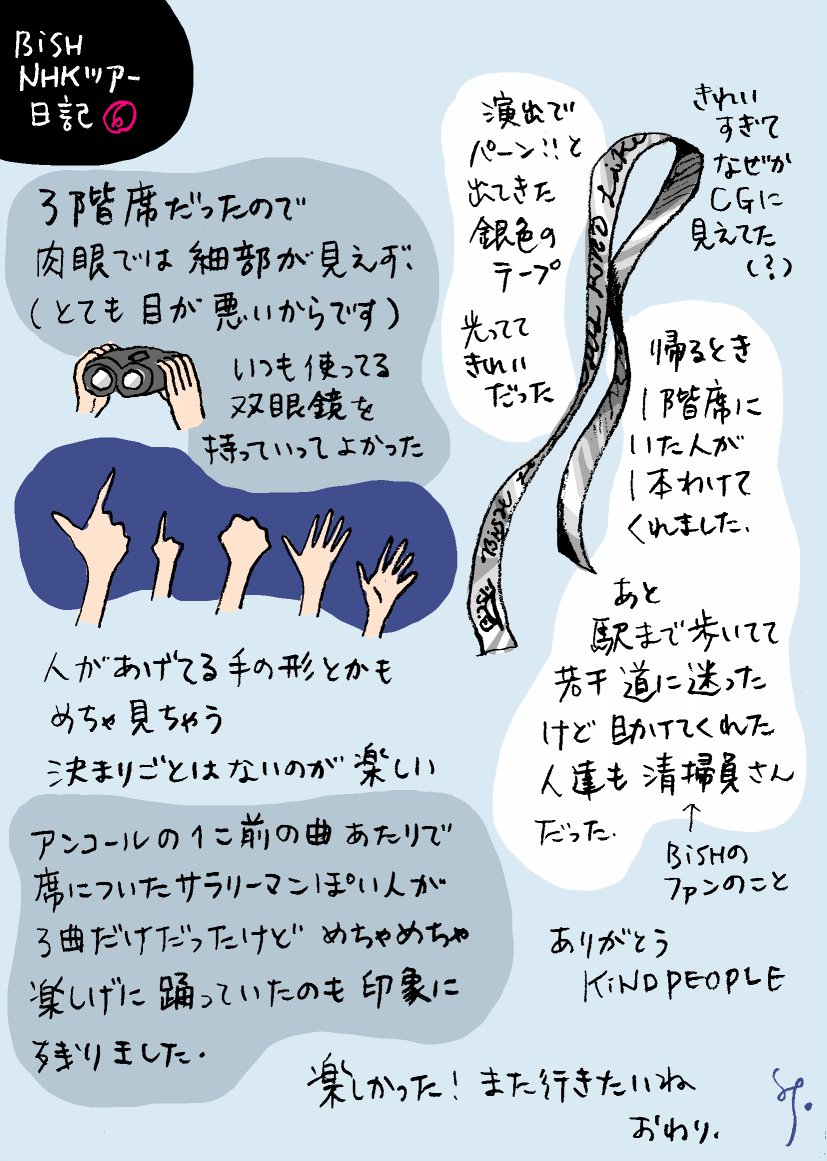 BiSH
NHKツアー
日記⑥
3階席だったので
肉眼では細部が見えず、
(とても目が悪いからです)
いつも使ってる
双眼鏡を
持っていってよかった
人があげてる手の形とかも
めちゃ見ちゃう
決まりごとはないのが楽しい
アンコールの1こ前の曲あたりで
席についたサラリーマンぽい人が
3曲だけだったけどめちゃめちゃ
楽しげに踊っていたのも印象に
残りました.
演出で
パーン!!と
出てきた
銀色の
テープ
光ってて
きれい
だった
きれい
すぎて
なぜか
CGに
見えてた
(?)
帰るとき
1階席に
いた人が
1本わけて
くれました.
あと
駅まで歩いてて
若干道に迷った
けど助けてくれた
人達も清掃員さん
だった.
↑
BiSHの
ファンのこと
ありがとう
KiNDPEOPLE
楽しかった!また行きたいね
おわり.